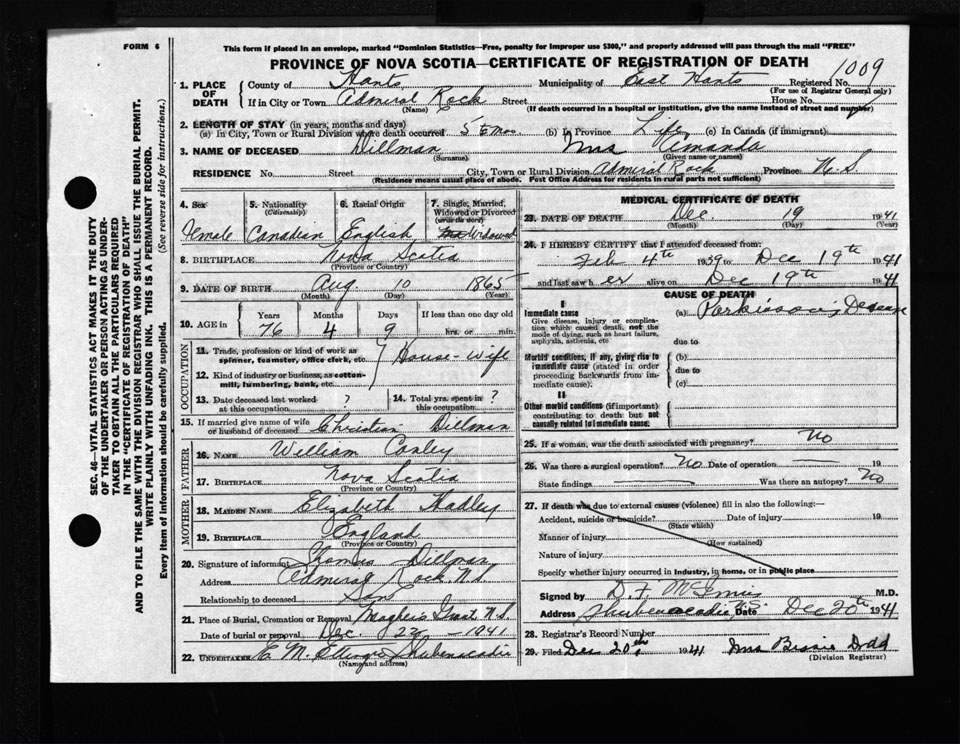 FORM 6
This form if placed in an envelope, marked "Dominion Statistics—Free, penalty for improper use $300," and properly addressed will pass through the mail "FREE"
PROVINCE OF NOVA SCOTIA—CERTIFICATE OF REGISTRATION OF DEATH
1009
1. PLACE OF DEATH
County of Hants Municipality of East Hants Registered No.
(For use of Registrar General only)
If in City or Town Admiral Rock Street House No.
(Name) (If death occurred in a hospital or institution, give the name instead of street and number)
2. LENGTH OF STAY (in years, months and days)
(a) In City, Town or Rural Division where death occurred (b) In Province Life (c) In Canada (if immigrant)
3. NAME OF DECEASED Dillman Mrs Amanda
(Surname) (Given name or names)
RESIDENCE No. Street City, Town or Rural Division Admiral Rock Province N.S.
(Residence means usual place of abode. Post Office Address for residents in rural parts not sufficient)
4. Sex
Female
5. Nationality
(Citizenship)
Canadian
6. Racial Origin
English
7. Single, Married, Widowed or Divorced
(write the word)
Widowed
8. BIRTHPLACE Nova Scotia
(Province or Country)
9. DATE OF BIRTH Aug 10 1865
(Month) (Day) (Year)
10. AGE in
Years Months Days If less than one day old
76 4 9 hrs. or min.
OCCUPATION
11. Trade, profession or kind of work as spinner, teamster, office clerk, etc. House-Wife
12. Kind of industry or business, as cotton-mill, lumbering, bank, etc.
13. Date deceased last worked at this occupation ?
14. Total yrs. spent in this occupation ?
15. If married give name of wife or husband of deceased Christian Dillman
FATHER
16. NAME William
17. BIRTHPLACE Nova Scotia
(Province or Country)
MOTHER
18. MAIDEN NAME Elizabeth Hadley
19. BIRTHPLACE England
(Province or Country)
20. Signature of informant Thomas Dillman
Address Admiral Rock N.S.
Relationship to deceased Son
21. Place of Burial, Cremation or Removal Maghers Grant N.S.
Date of burial or removal Dec. 22 — 1941
22. UNDERTAKER E. M. Ettinger Shubenacadie
(Name and address)
MEDICAL CERTIFICATE OF DEATH
23. DATE OF DEATH Dec. 19 1941
(Month) (Day) (Year)
24. I HEREBY CERTIFY that I attended deceased from:
Feb 4th 1939 to Dec 19th 1941
and last saw her alive on Dec 19th 1941
CAUSE OF DEATH
I
Immediate cause
Give disease, injury or complication which caused death, not the mode of dying, such as heart failure, asphyxia, asthenia, etc.
(a) Parkinson's Disease
due to
Morbid conditions, if any, giving rise to immediate cause (stated in order proceeding backwards from immediate cause).
(b)
due to
(c)
II
Other morbid conditions (if important) contributing to death but not causally related to immediate cause.
25. If a woman, was the death associated with pregnancy? No
26. Was there a surgical operation? No Date of operation 19
State findings Was there an autopsy? No
27. If death was due to external causes (violence) fill in also the following:—
Accident, suicide or homicide? Date of injury 19
(State which)
Manner of injury
(How sustained)
Nature of injury
Specify whether injury occurred in industry, in home, or in public place
Signed by D. F. McInnis M.D.
Address Shubenacadie, N.S. Date Dec 20th 1941
28. Registrar's Record Number
29. Filed Dec 20th, 1941 Mrs Bessie Dodd
(Division Registrar)
SEC. 46—VITAL STATISTICS ACT MAKES IT THE DUTY
OF THE UNDERTAKER OR PERSON ACTING AS UNDER-
TAKER TO OBTAIN ALL THE PARTICULARS REQUIRED
IN THE "CERTIFICATE OF REGISTRATION OF DEATH"
AND TO FILE THE SAME WITH THE DIVISION REGISTRAR WHO SHALL ISSUE THE BURIAL PERMIT.
WRITE PLAINLY WITH UNFADING INK. THIS IS A PERMANENT RECORD.
Every item of information should be carefully supplied. (See reverse side for instructions.)